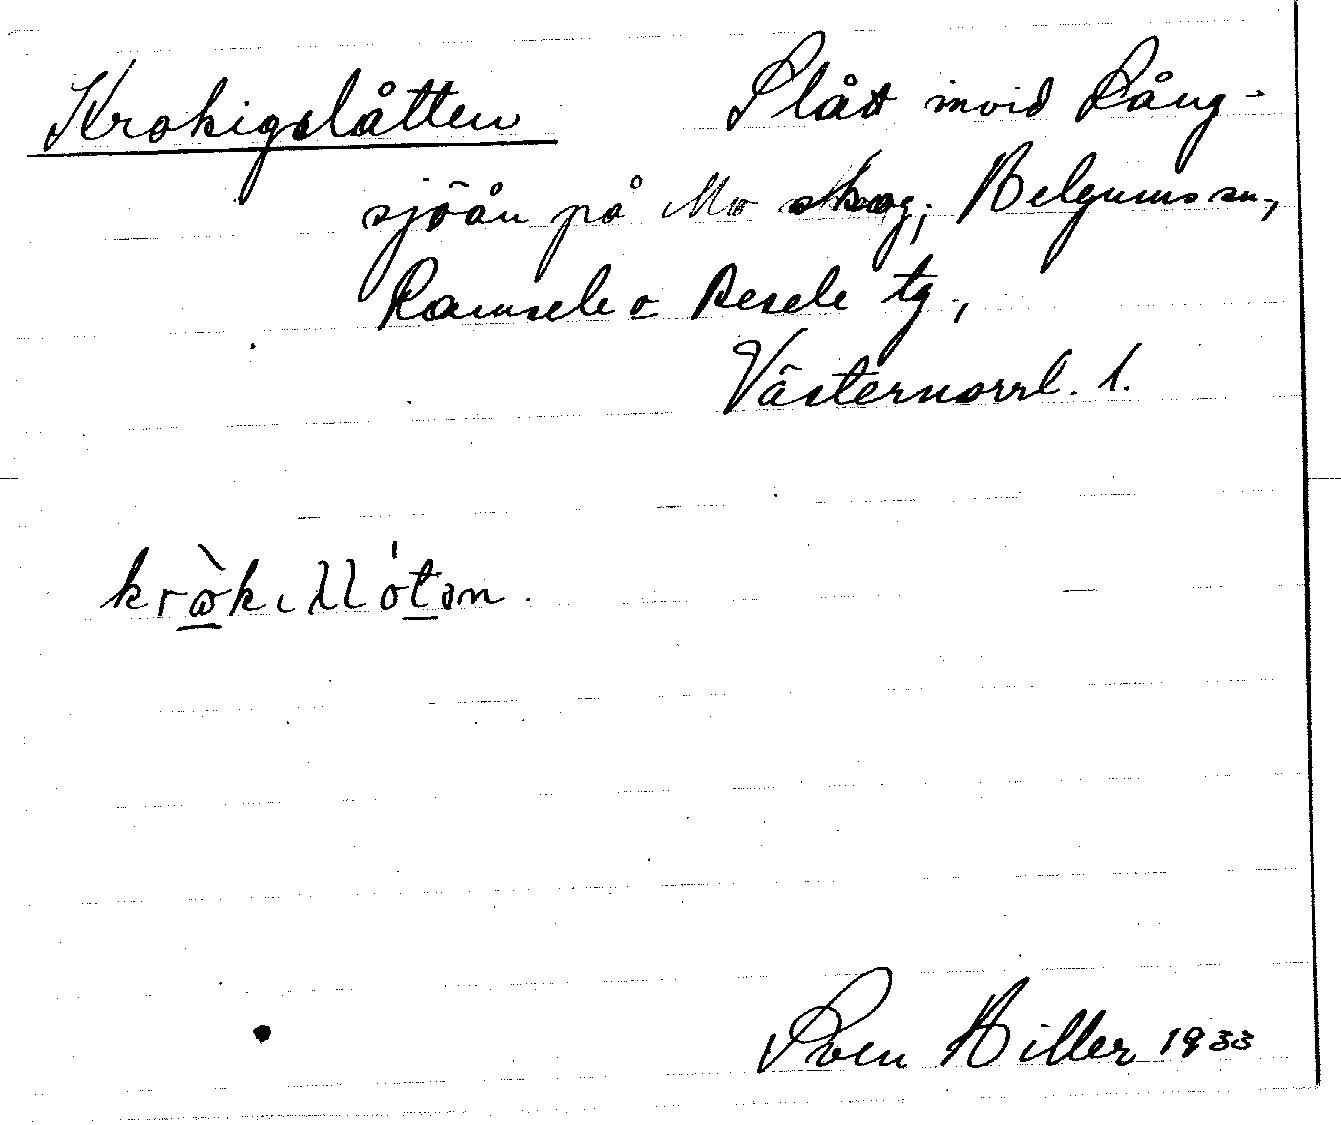 Krokigslåtten Slått invid Lång-
sjöån på Mo skog, Helgums sn,
Ramsele o Resele tg,
Västernorrl. l.
Sven Hiller 1933